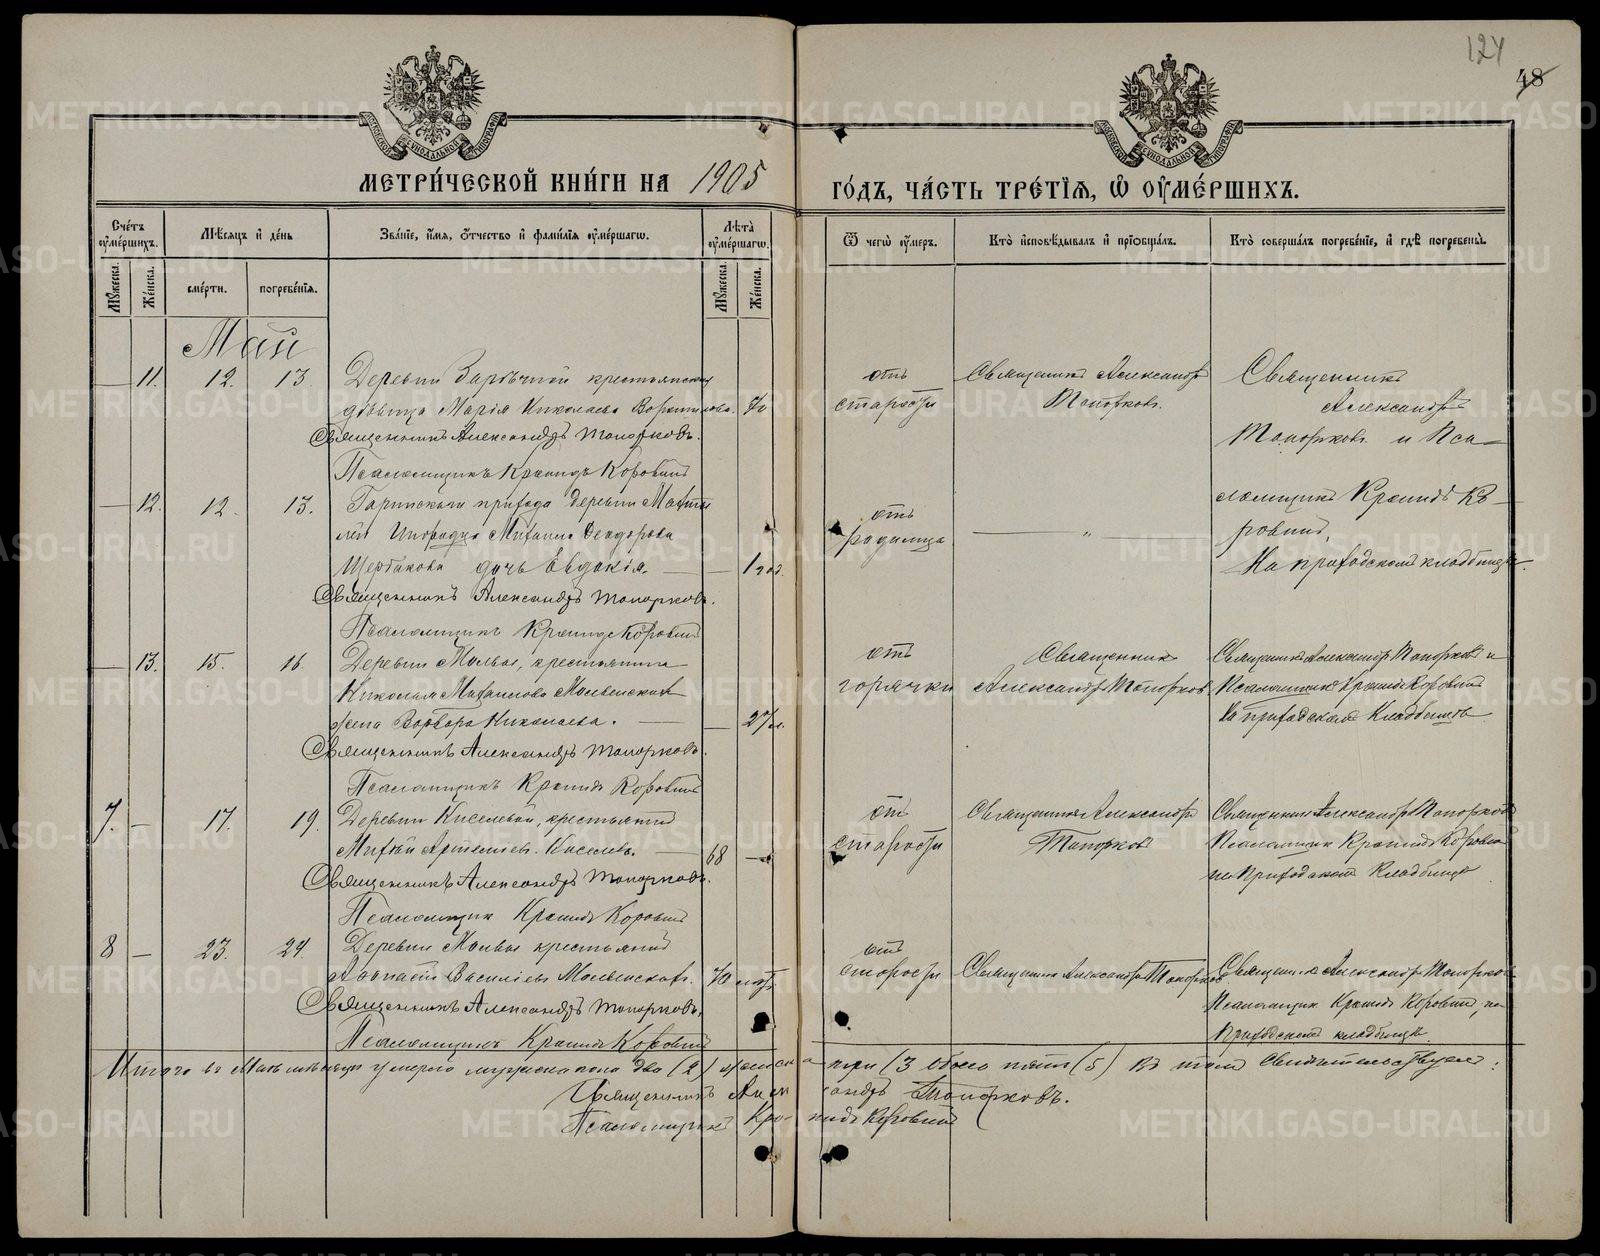 124
48
МЕТРИ́ЧЕСКОЙ КНИ́ГИ НА 1905 ГО́ДЪ, ЧА́СТЬ ТРЕ́ТІѦ, Ѡ҆ ОУ҆МЕ́РШИХЪ.
Сче́тъ оу҆ме́ршихъ.
Мѣ́сяцъ и҆ де́нь
Зва́ніе, и҆́мѧ, ѻ҆́тчество и҆ фами́лїѧ оу҆ме́ршагѡ.
Лѣ́та оу҆ме́ршагѡ.
Ѿ чегѡ̀ оу҆́меръ.
Кто̀ и҆сповѣ́дывалъ и҆ прїѡбща́лъ.
Кто̀ соверша́лъ погребе́нїе, и҆ гдѣ̀ погребены̀.
Мꙋ́жеска.
Же́нска.
сме́рти.
погребе́нїѧ.
Мꙋ́жеска.
Же́нска.
Май
— 11. 12. 13. Деревни Зарѣчной крестьянская
дѣвица Марія Николаева 70
Священникъ Александръ Топорковъ.
Псаломщикъ Кронидъ Коровинъ
отъ старости
Священникъ Александръ Топорковъ.
Священникъ
Александръ
Топорковъ и Пса-
ломщикъ Кронидъ Ко-
ровинъ,
На приходскомъ кладбищѣ.
— 12. 12. 13. Гаринскаго прихода деревни
Михаила Феодорова
Щербакова дочь Евдокія. — — 1 год.
Священникъ Александръ Топорковъ.
Псаломщикъ Кронидъ Коровинъ
отъ родимца
— „ —
— 13. 15. 16. Деревни Мольвы, крестьянина
Николая Михаилова Мольвенскихъ
жена Варвара Николаева. — — 27 л.
Священникъ Александръ Топорковъ.
Псаломщикъ Кронидъ Коровинъ
отъ горячки
Священникъ
Александръ Топорковъ
Священникъ Александръ Топорковъ и
Псаломщикъ Кронидъ Коровинъ
На приходскомъ кладбищѣ
7. — 17. 19. Деревни Киселевой, крестьянинъ
Киселевъ. — 68 —
Священникъ Александръ Топорковъ.
Псаломщикъ Кронидъ Коровинъ
отъ старости
Священникъ Александръ
Топорковъ
Священникъ Александръ Топорковъ
Псаломщикъ Кронидъ Коровинъ
на Приходскомъ кладбищѣ
8 — 23. 24. Деревни Мольвы крестьянинъ
Василіевъ Мольвенскихъ. 70 лѣтъ
Священникъ Александръ Топорковъ,
Псаломщикъ Кронидъ Коровинъ
отъ старости
Священникъ Александръ Топорковъ.
Священникъ Александръ Топорковъ
Псаломщикъ Кронидъ Коровинъ, на
Приходскомъ кладбищѣ.
Итого въ Маѣ мѣсяцѣ умерло мужеска пола два (2) женска три (3 обоего пять (5) Въ томъ Свидѣтельствуемъ:
Священникъ Александръ Топорковъ.
Псаломщикъ Кронидъ Коровинъ
METRIKI.GASO-URAL.RU